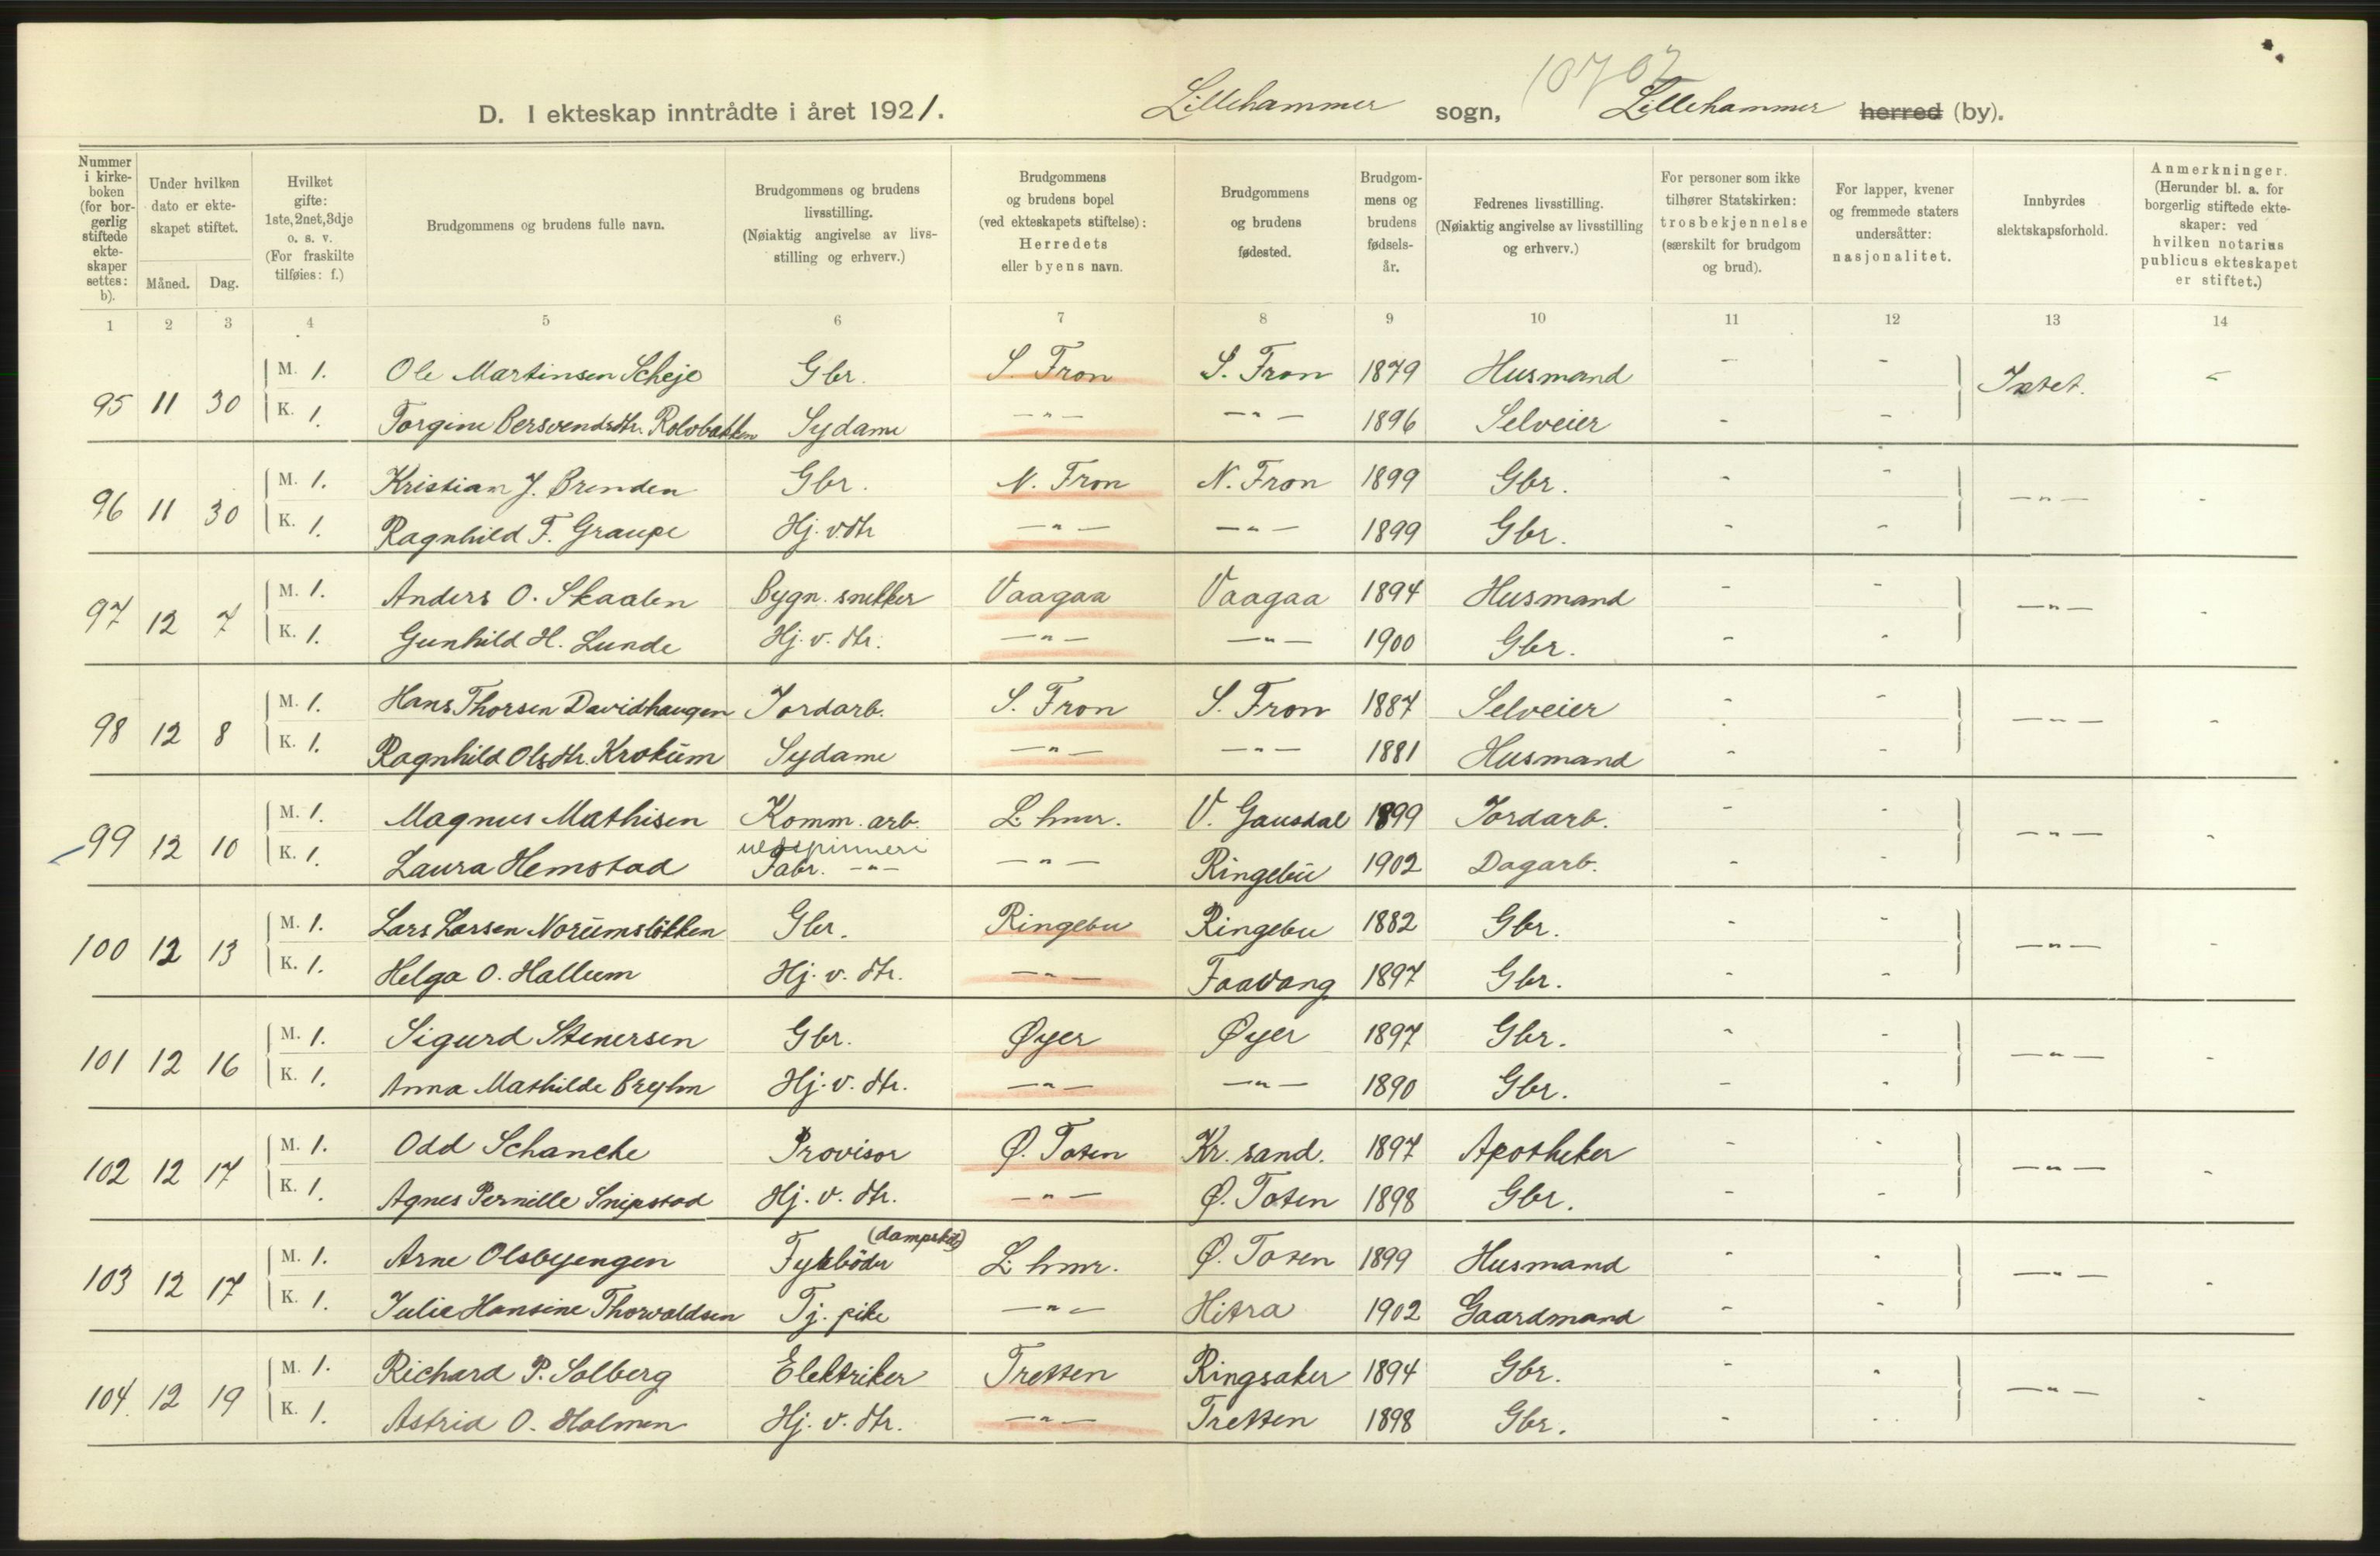 10707
D. I ekteskap inntrådte i året 1921. Lillehammer sogn, Lillehammer herred (by).
Nummer i kirke-boken (for bor-gerlig stiftede ekte-skaper settes: b).
Under hvilken dato er ekte-skapet stiftet.
Måned. Dag.
Hvilket gifte: 1ste, 2net, 3dje o. s. v. (For fraskilte tilføies: f.)
Brudgommens og brudens fulle navn.
Brudgommens og brudens livsstilling. (Nøiaktig angivelse av livs-stilling og erhverv.)
Brudgommens og brudens bopel (ved ekteskapets stiftelse): Herredets eller byens navn.
Brudgommens og brudens fødested.
Brudgom-mens og brudens fødsels-år.
Fedrenes livsstilling. (Nøiaktig angivelse av livsstilling og erhverv.)
For personer som ikke tilhører Statskirken: trosbekjennelse (særskilt for brudgom og brud).
For lapper, kvener og fremmede staters undersåtter: nasjonalitet.
Innbyrdes slektskapsforhold.
Anmerkninger. (Herunder bl. a. for borgerlig stiftede ekte-skaper: ved hvilken notarius publicus ekteskapet er stiftet.)
1 2 3 4 5 6 7 8 9 10 11 12 13 14
95 11 30 M. 1. Ole Martinsen Scheje Gbr. S. Fron S. Fron 1879 Husmand - - Intet. -
K. 1. Torgine Bersvendsdtr. Rolvbakken Sydame -"- -"- 1896 Selveier - -
96 11 30 M. 1. Kristian J. Brenden Gbr. N. Fron N. Fron 1899 Gbr. - - -"- -
K. 1. Ragnhild F. Graupe Hj. v. dtr -"- -"- 1899 Gbr. - -
97 12 7 M. 1. Anders O. Skaalen Bygn. snekker Vaagaa Vaagaa 1894 Husmand - - -"- -
K. 1. Gunhild H. Lunde Hj. v. dtr. -"- -"- 1900 Gbr. - -
98 12 8 M. 1. Hans Thorsen Davidhaugen Jordarb. S. Fron S. Fron 1887 Selveier - - -"- -
K. 1. Ragnhild Olsdtr. Krokum Sydame -"- -"- 1881 Husmand - -
99 12 10 M. 1. Magnus Mathisen Komm. arb. L.hmr. V. Gausdal 1899 Jordarb. - - -"- -
K. 1. Laura Hemstad Fabr. -"- -"- Ringebu 1902 Dagarb. - -
100 12 13 M. 1. Lars Larsen Norumsløkken Gbr. Ringebu Ringebu 1882 Gbr. - - -"- -
K. 1. Helga O. Hallum Hj. v. dtr. -"- Faavang 1897 Gbr. - -
101 12 16 M. 1. Sigurd Stenersen Gbr. Øyer Øyer 1897 Gbr. - - -"- -
K. 1. Anna Mathilde Bryhn Hj. v. dtr. -"- -"- 1890 Gbr. - -
102 12 17 M. 1. Odd Schanche Provisor Ø. Toten Kr. sand. 1897 Apotheker - - -"- -
K. 1. Agnes Pernille Snipstad Hj. v. dtr. -"- Ø. Toten 1898 Gbr. - -
103 12 17 M. 1. Arne Olsbyengen Fyrbøder L.hmr. Ø. Toten 1899 Husmand - - -"- -
K. 1. Julie Hansine Thorvaldsen Tj. pike -"- Hitra 1902 Gaardmand - -
104. 12 19 M. 1. Richard P. Solberg Elektriker Tretten Ringsaker 1894 Gbr. - - -"- -
K. 1. Astrid O. Holmen Hj. v. dtr. -"- Tretten 1898 Gbr. - -